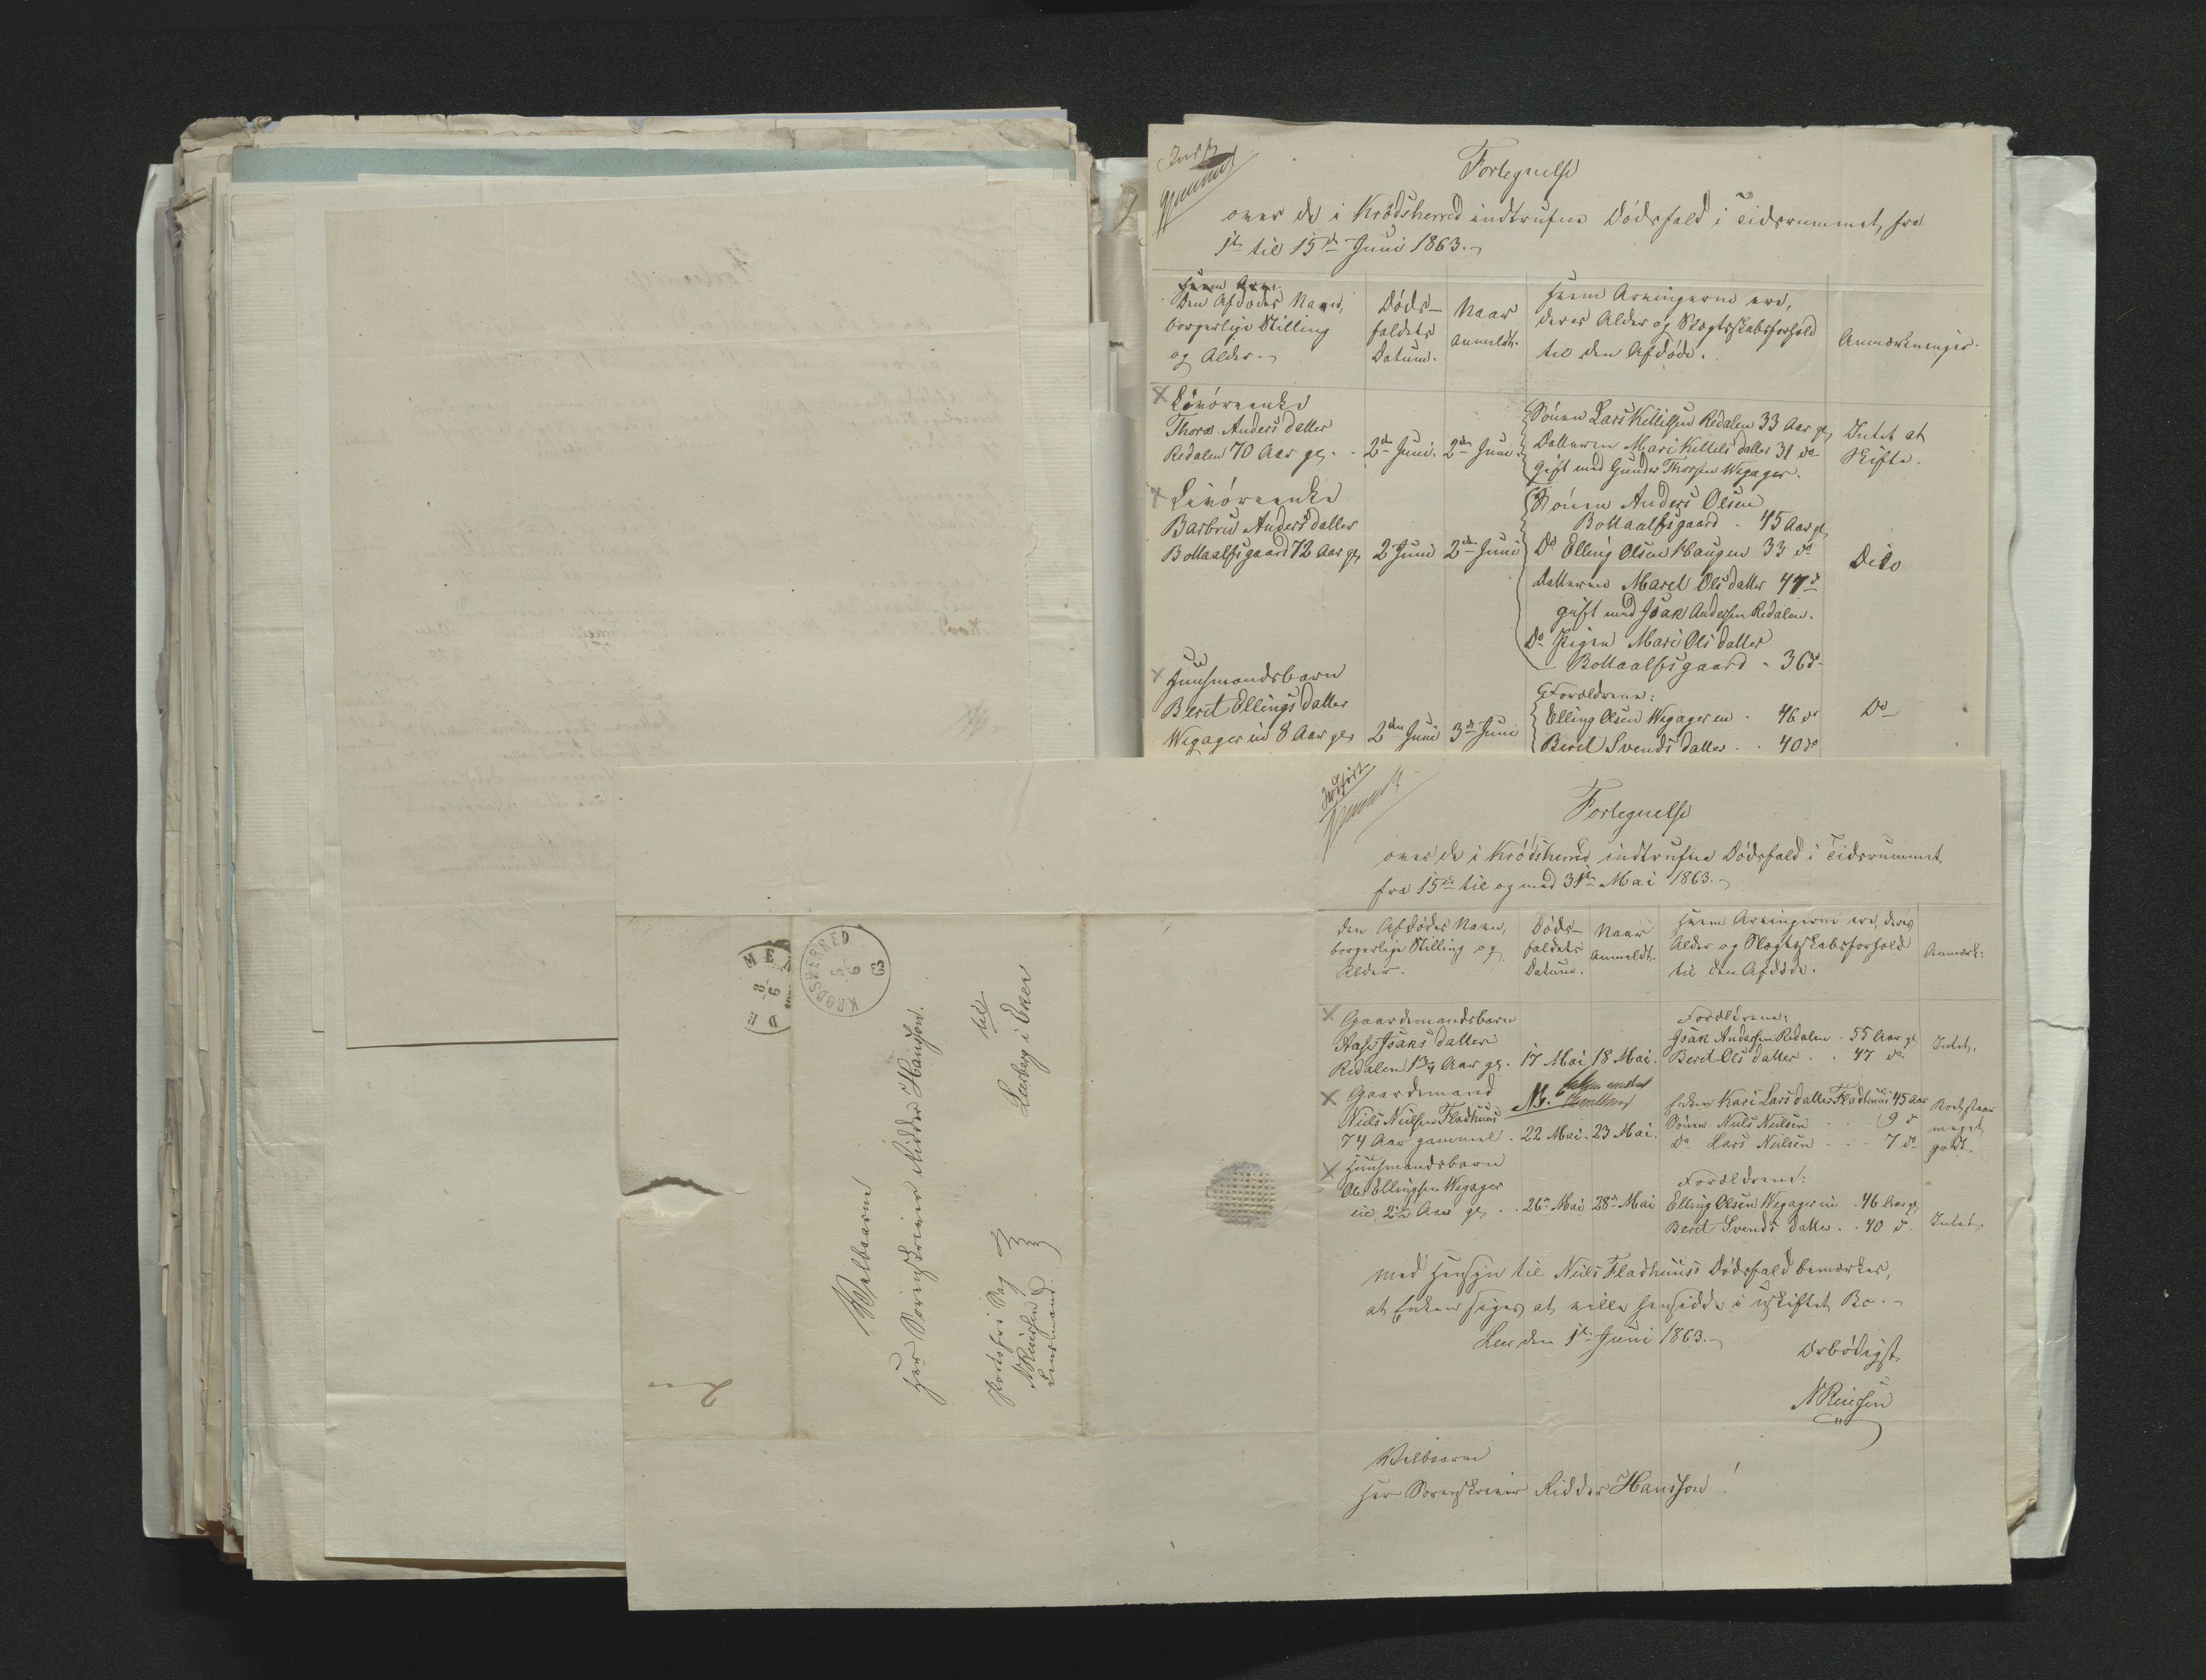 Fortegnelse
over de i Krødsherred indtrufne Dødsfald i Tidsrummet, fra
1ste til 15de Juni 1863.
Den Afdødes Navn,
borgerlige Stilling
og Alder.
Døds-
faldets
Datum.
Naar
anmeldt.
Hvem Arvingerne ere,
deres Alder og Slægtskabsforhold
til den Afdøde.
Anmærkninger.
Thora Anders datter
Redalen 70 Aar gl. 2den Juni. 2den Juni.
Sønen Lars Kittilsen Redalen 33 Aar gl
Datteren Mari Kittels datter 31 do
gift med Gunder Thorsen Wegager.
Intet at
Skifte.
Barbru Anders datter
Bottaalfsgaard 72 Aar gl, 2 Juni 2den Juni
Sønen Anders Olsen
Bottaalfsgaard - 45 Aar gl,
Do Elling Olsen Haugen 33 do
Datteren Marit Ols datter 47 do
gift med Isak Andersen Redalen.
Do Pigen Mari Ols datter
Bottaalfsgaard - 36 do
Dito
Huusmandsbarn
Berit Ellings datter
Wegager ei 8 Aar gl, 2den Juni 3de Juni
Foreldrene:
Elling Olsen Wegager ei - 46 do
Berit Svends datter - 40 do
Do
Indført
Fortegnelse
over de i Krødsherred indtrufne Dødsfald i Tidsrummet,
fra 15de til og med 31te Mai 1863.
Den Afdødes Navn,
borgerlige Stilling og
Alder.
Døds-
faldets
Datum.
Naar
anmeldt.
Hvem Arvingerne ere, deres
Alder og Slægtskabsforhold
til den Afdøde.
Anmærk:
Gaardmandsbarn
Isaks datter
Redalen 1 3/4 Aar gl. 17 Mai 18 Mai.
Foreldrene:
Isak Andersen Redalen - 55 Aar gl
Berit Ols datter - 47 do
Intet.
Gaardmand
Niels Nielsen Fladhuus
74 Aar gammel - 22 Mai. 23 Mai.
Enken Kari Lars datter Fladhuus 45 Aar
Sønen Niels Nielsen - 9 do
Do Lars Nielsen - 7 do
meget
godt.
Huusmandsbarn
Ole Ellingsen Wegager
ei, 2 1/2 Aar gl, 26de Mai 28de Mai
Foreldrene:
Elling Olsen Wegager ei - 46 Aar gl,
Berit Svends datter - 40 do
Intet.
Med Hensyn til Niels Fladhuus's Dødsfald bemærkes,
at Enken siges at ville hensidde i uskiftet Bo.
Leer den 1te Juni 1863.
Ærbødigst
N Reiersen
Velbaarne
Herr Sorenskriver Ridder Hansson!
KRØDSHERRED
5
6
63
DR
MEN
9
8
Velbaarne
Herr Sorenskriver Ridder Hansson.
til
Leeberg i Eker
Portofri Sag
N Reiersen
Lensmand